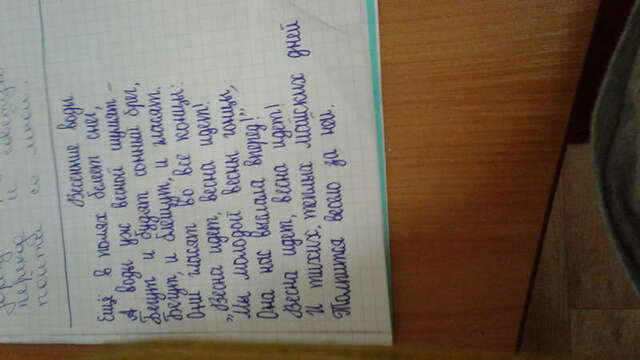 дорогу
переход и советую
пойти со мной.
Весенние воды
Ещё в полях белеет снег,
А воды уж весной шумят –
Бегут и будят сонный брег,
Бегут, и блещут, и гласят.
Они гласят во все концы:
„Весна идет, весна идет!
Мы молодой весны гонцы,
Она нас выслала вперед!"
Весна идет, весна идет!
И тихих, теплых майских дней
Толпится весело за ней.